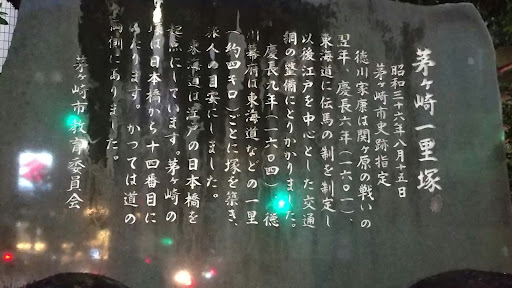 茅ヶ崎一里塚
昭和三十六年八月十五日
茅ヶ崎市史跡指定
徳川家康は関ヶ原の戦いの
翌年、慶長六年(一六〇一)、
東海道に伝馬の制を制定し
以後江戸を中心とした交通
網の整備にとりかかりました。
慶長九年(一六〇四)、徳
川幕府は東海道などの一里
(約四キロ)ごとに塚を築き、
旅人の目安にしました。
東海道は江戸の日本橋を
起点にしています。茅ヶ崎の
塚は日本橋から十四番目に
あたります。かつては道の
両側にありました。
茅ヶ崎市教育委員会